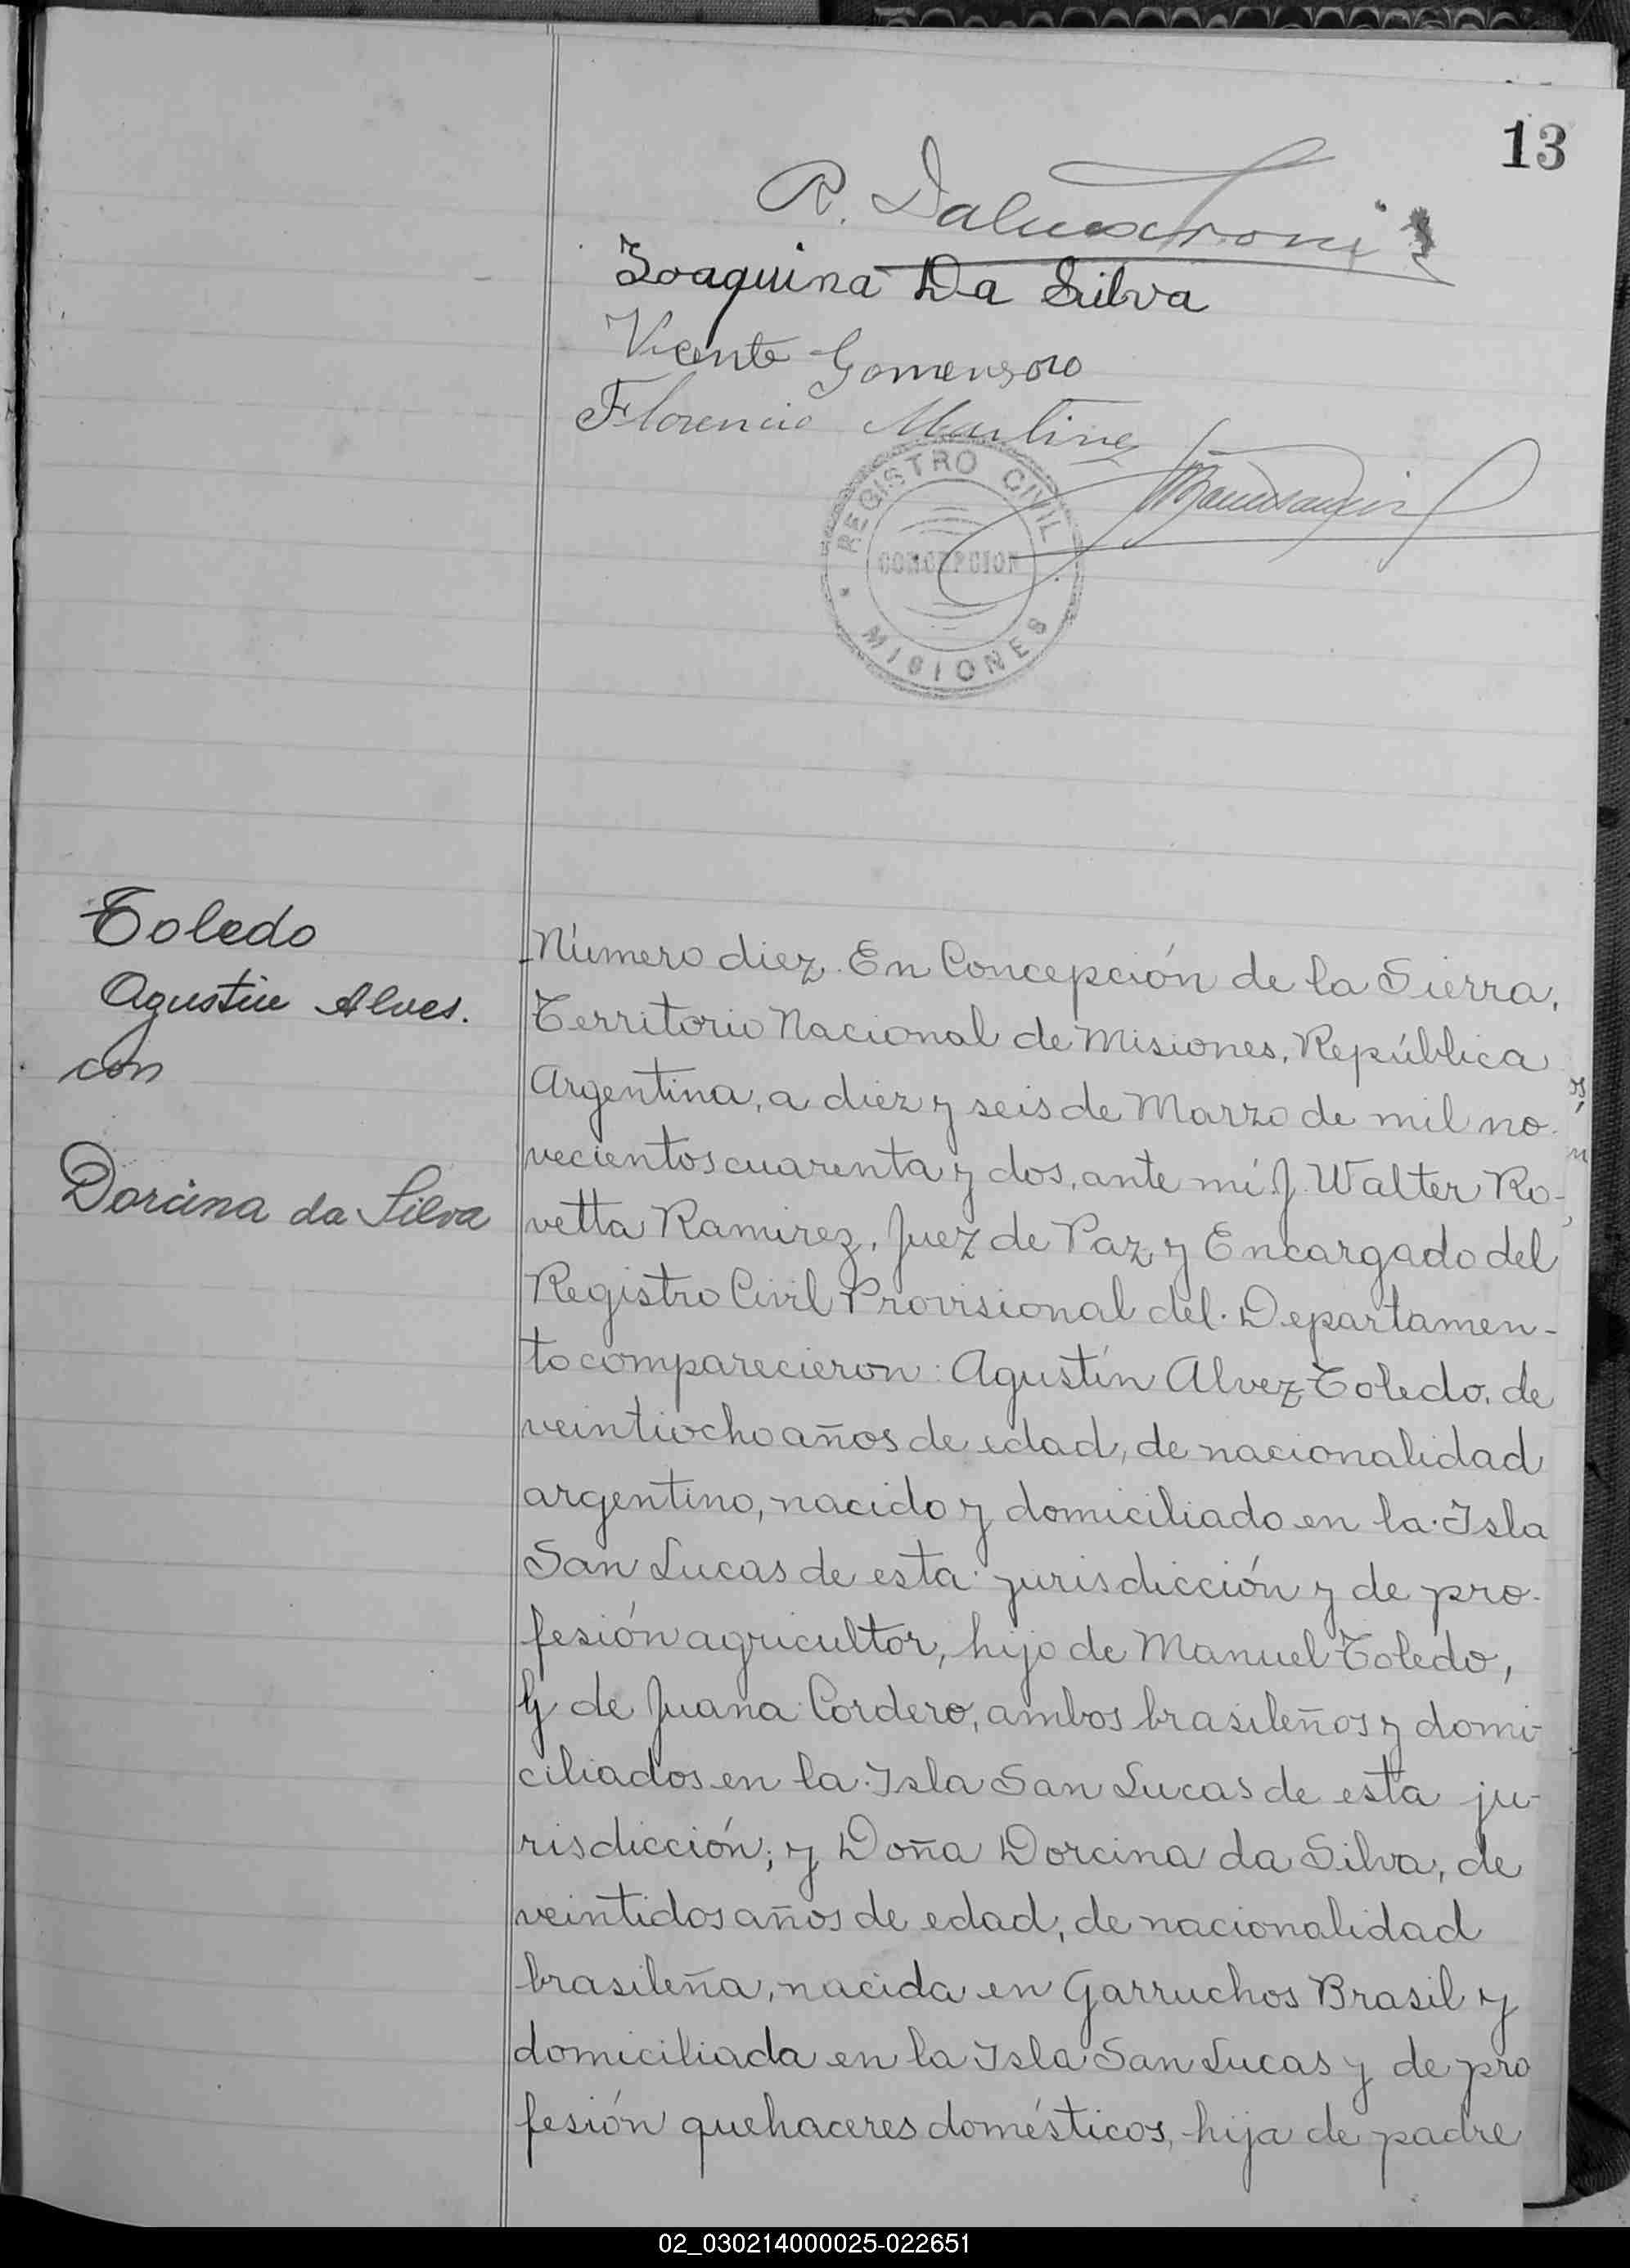 13
R.
Joaquina Da Silva
Vicente Gomensoro
Florencio Martinez
REGISTRO CIVIL
CONCEPCION
MISIONES
Toledo
Agustin Alves.
con
Dorcina da Silva
Número diez. En Concepción de la Sierra,
Territorio Nacional de Misiones, República
Argentina, a diez y seis de Marzo de mil no-
vecientos cuarenta y dos, ante mí J. Walter Ro-
vetta Ramirez, Juez de Paz y Encargado del
Registro Civil Provisional del Departamen-
to comparecieron: Agustín Alvez Toledo, de
veintiocho años de edad, de nacionalidad
argentino, nacido y domiciliado en la Isla
San Lucas de esta jurisdicción y de pro-
fesión agricultor, hijo de Manuel Toledo,
y de Juana Cordero, ambos brasileños y domi-
ciliados en la Isla San Lucas de esta ju-
risdicción; y Doña Dorcina da Silva, de
veintidos años de edad, de nacionalidad
brasileña, nacida en Garruchos Brasil y
domiciliada en la Isla San Lucas y de pro
fesión quehaceres domésticos, hija de padre
02_030214000025-022651